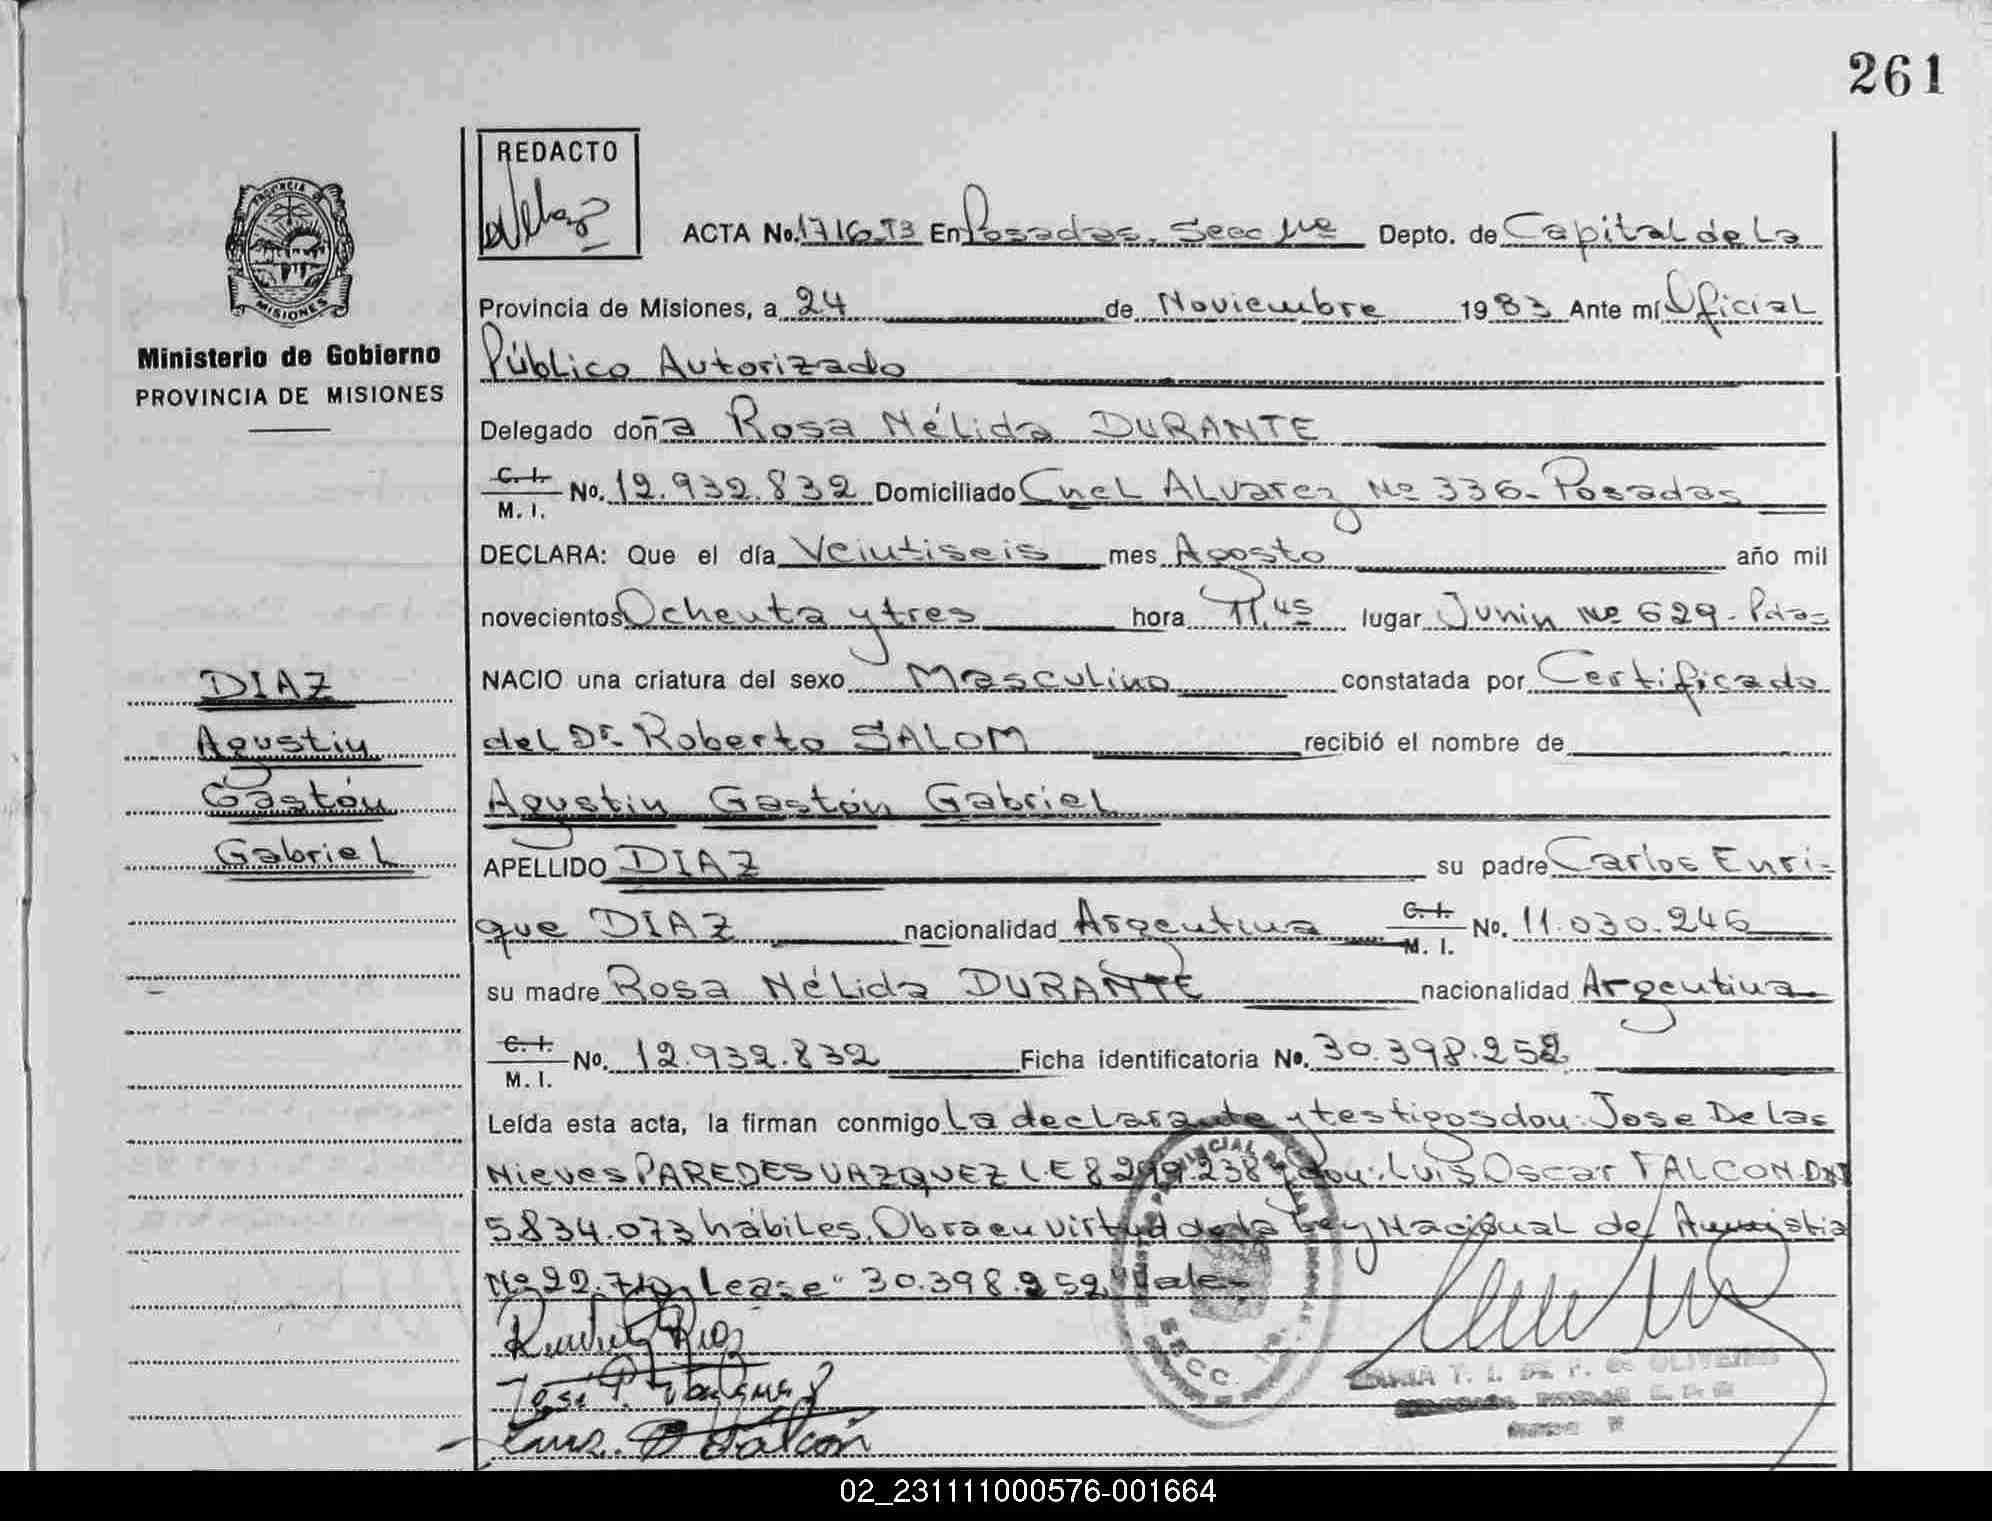 261
REDACTO
PROVINCIA
MISIONES
Ministerio de Gobierno
PROVINCIA DE MISIONES
ACTA No. 1716 T3 En Posadas, Secc 1ra Depto. de Capital de La
Provincia de Misiones, a 24 de Noviembre 1983 Ante mí Oficial
Público Autorizado
Delegado doña Rosa Nélida DURANTE
C. I. M. I. No. 12.932.832 Domiciliado Cnel Alvarez Nº 336- Posadas
DECLARA: Que el día Veintiseis mes Agosto año mil
novecientos Ochenta y tres hora 11,45 lugar Junin Nº 629- Pdas
NACIO una criatura del sexo Masculino constatada por Certificado
del Dr. Roberto SALOM recibió el nombre de
Agustin Gastón Gabriel
APELLIDO DIAZ su padre Carlos Enri-
que DIAZ nacionalidad Argentina C. I. M. I. No. 11.030.246
su madre Rosa Nélida DURANTE nacionalidad Argentina
C. I. M. I. No. 12.932.832 Ficha identificatoria No. 30.398.252
Leída esta acta, la firman conmigo La declarante y testigos don: Jose De Las
Nieves PAREDES VAZQUEZ L.E 8.299.238 y don: Luis Oscar FALCON DNI
5834.073 hábiles. Obra en virtud de la Ley Nacional de Amnistia
Nº 22.710, Lease "30.398.252" Vale-
DIAZ
Agustin
Gastón
Gabriel
SECC.
02_231111000576-001664